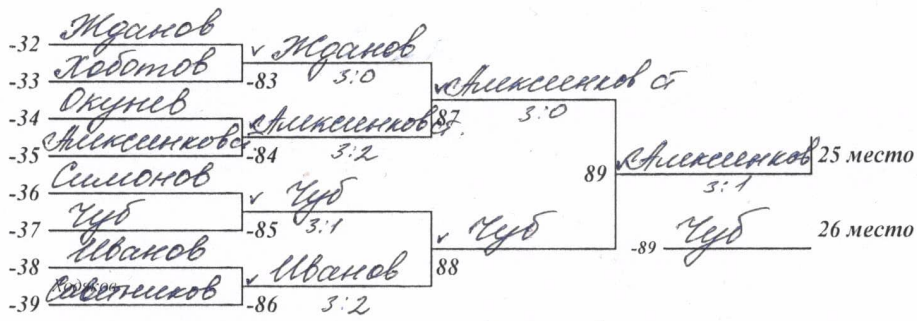 -32 Жданов
-33 Хоботов
-34 Окунев
-35 Алексеенков ст
-36 Симонов
-37 Чуб
-38 Иванов
-39
-83 Жданов 3:0
-84 Алексеенков ст. 3:2
-85 Чуб 3:1
-86 Иванов 3:2
87 Алексеенков ст 3:0
88 Чуб
89 Алексеенков 3:1 25 место
-89 Чуб 26 место